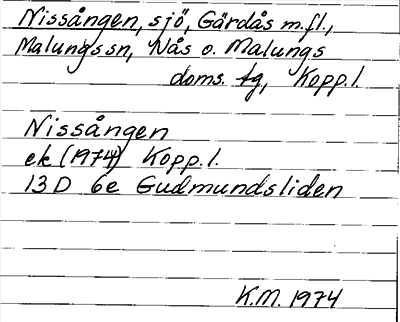 Nissången, sjö, Gärdås m.fl.,
Malungssn, Nås o. Malungs
doms. tg, Kopp. l.
Nissången
ek (1974) Kopp. l.
13D 6e Gudmundsliden
K.M. 1974